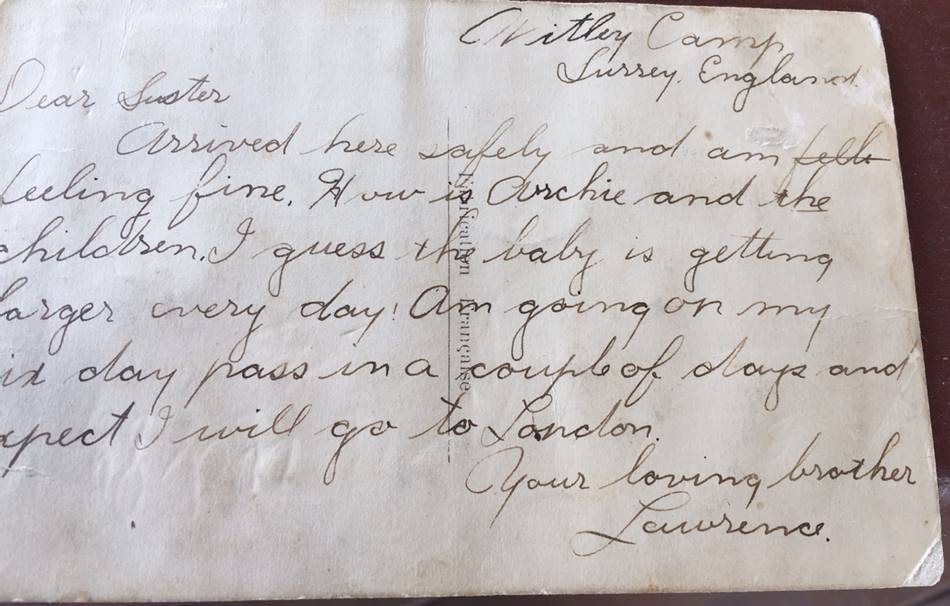 Witley Camp
Surrey. England.
Dear Suster
Arrived here safely and am felt
feeling fine. How is Archie and the
children. I guess the baby is getting
larger every day! Am going on my
ix day pass in a couple of days and
xpect I will go to London.
Your loving brother
Lawrence.
Edition Française